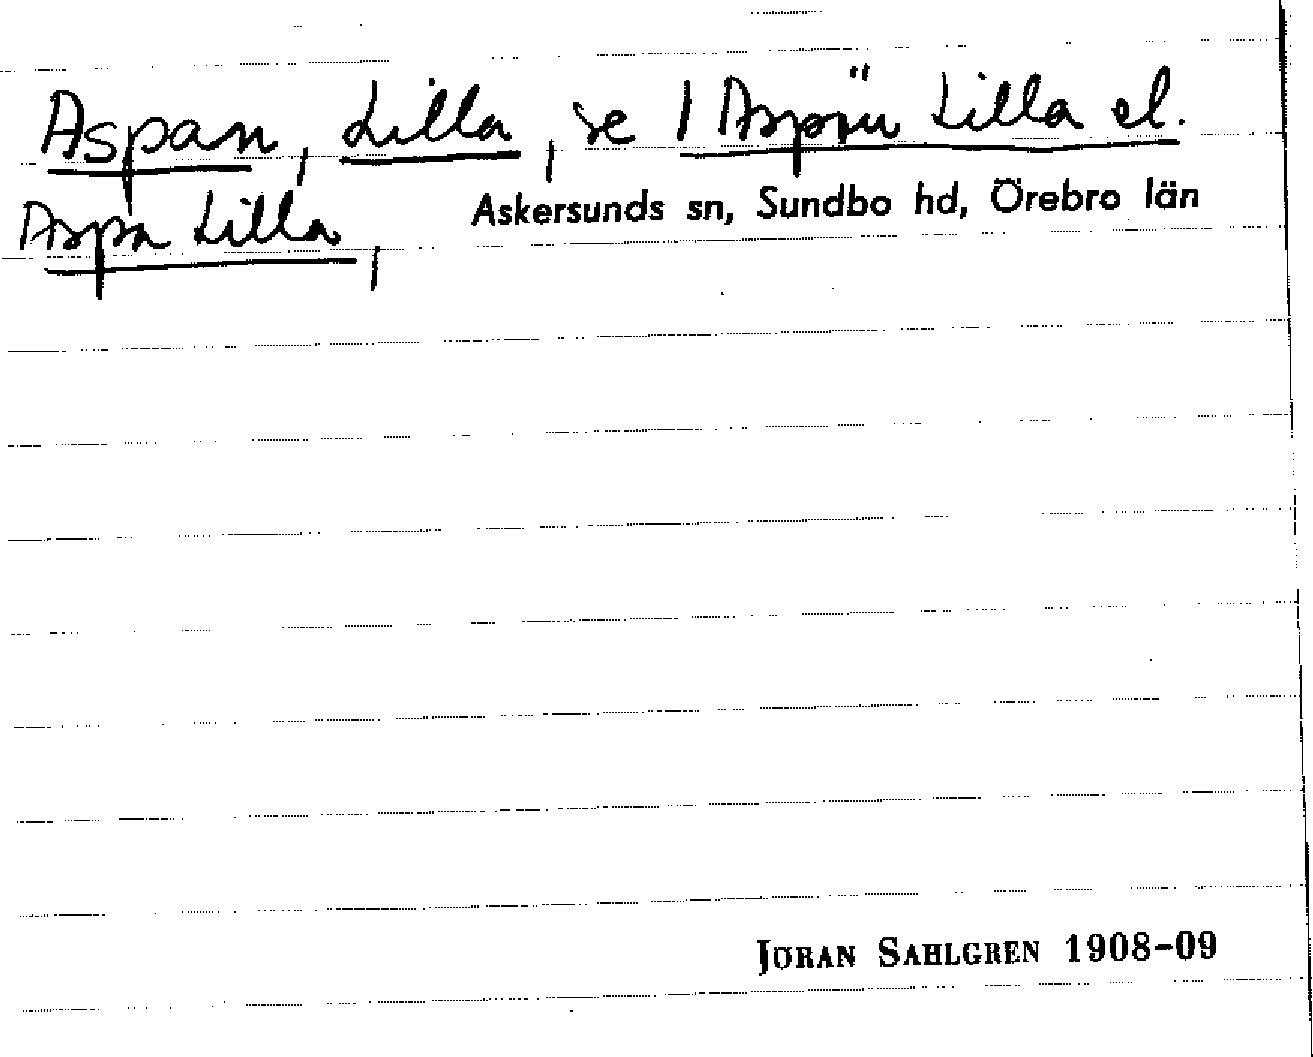 Aspan, Lilla, se 1 Aspön Lilla el.
Aspa Lilla,
Askersunds sn, Sundbo hd, Örebro län
JÖRAN SAHLGREN 1908-09